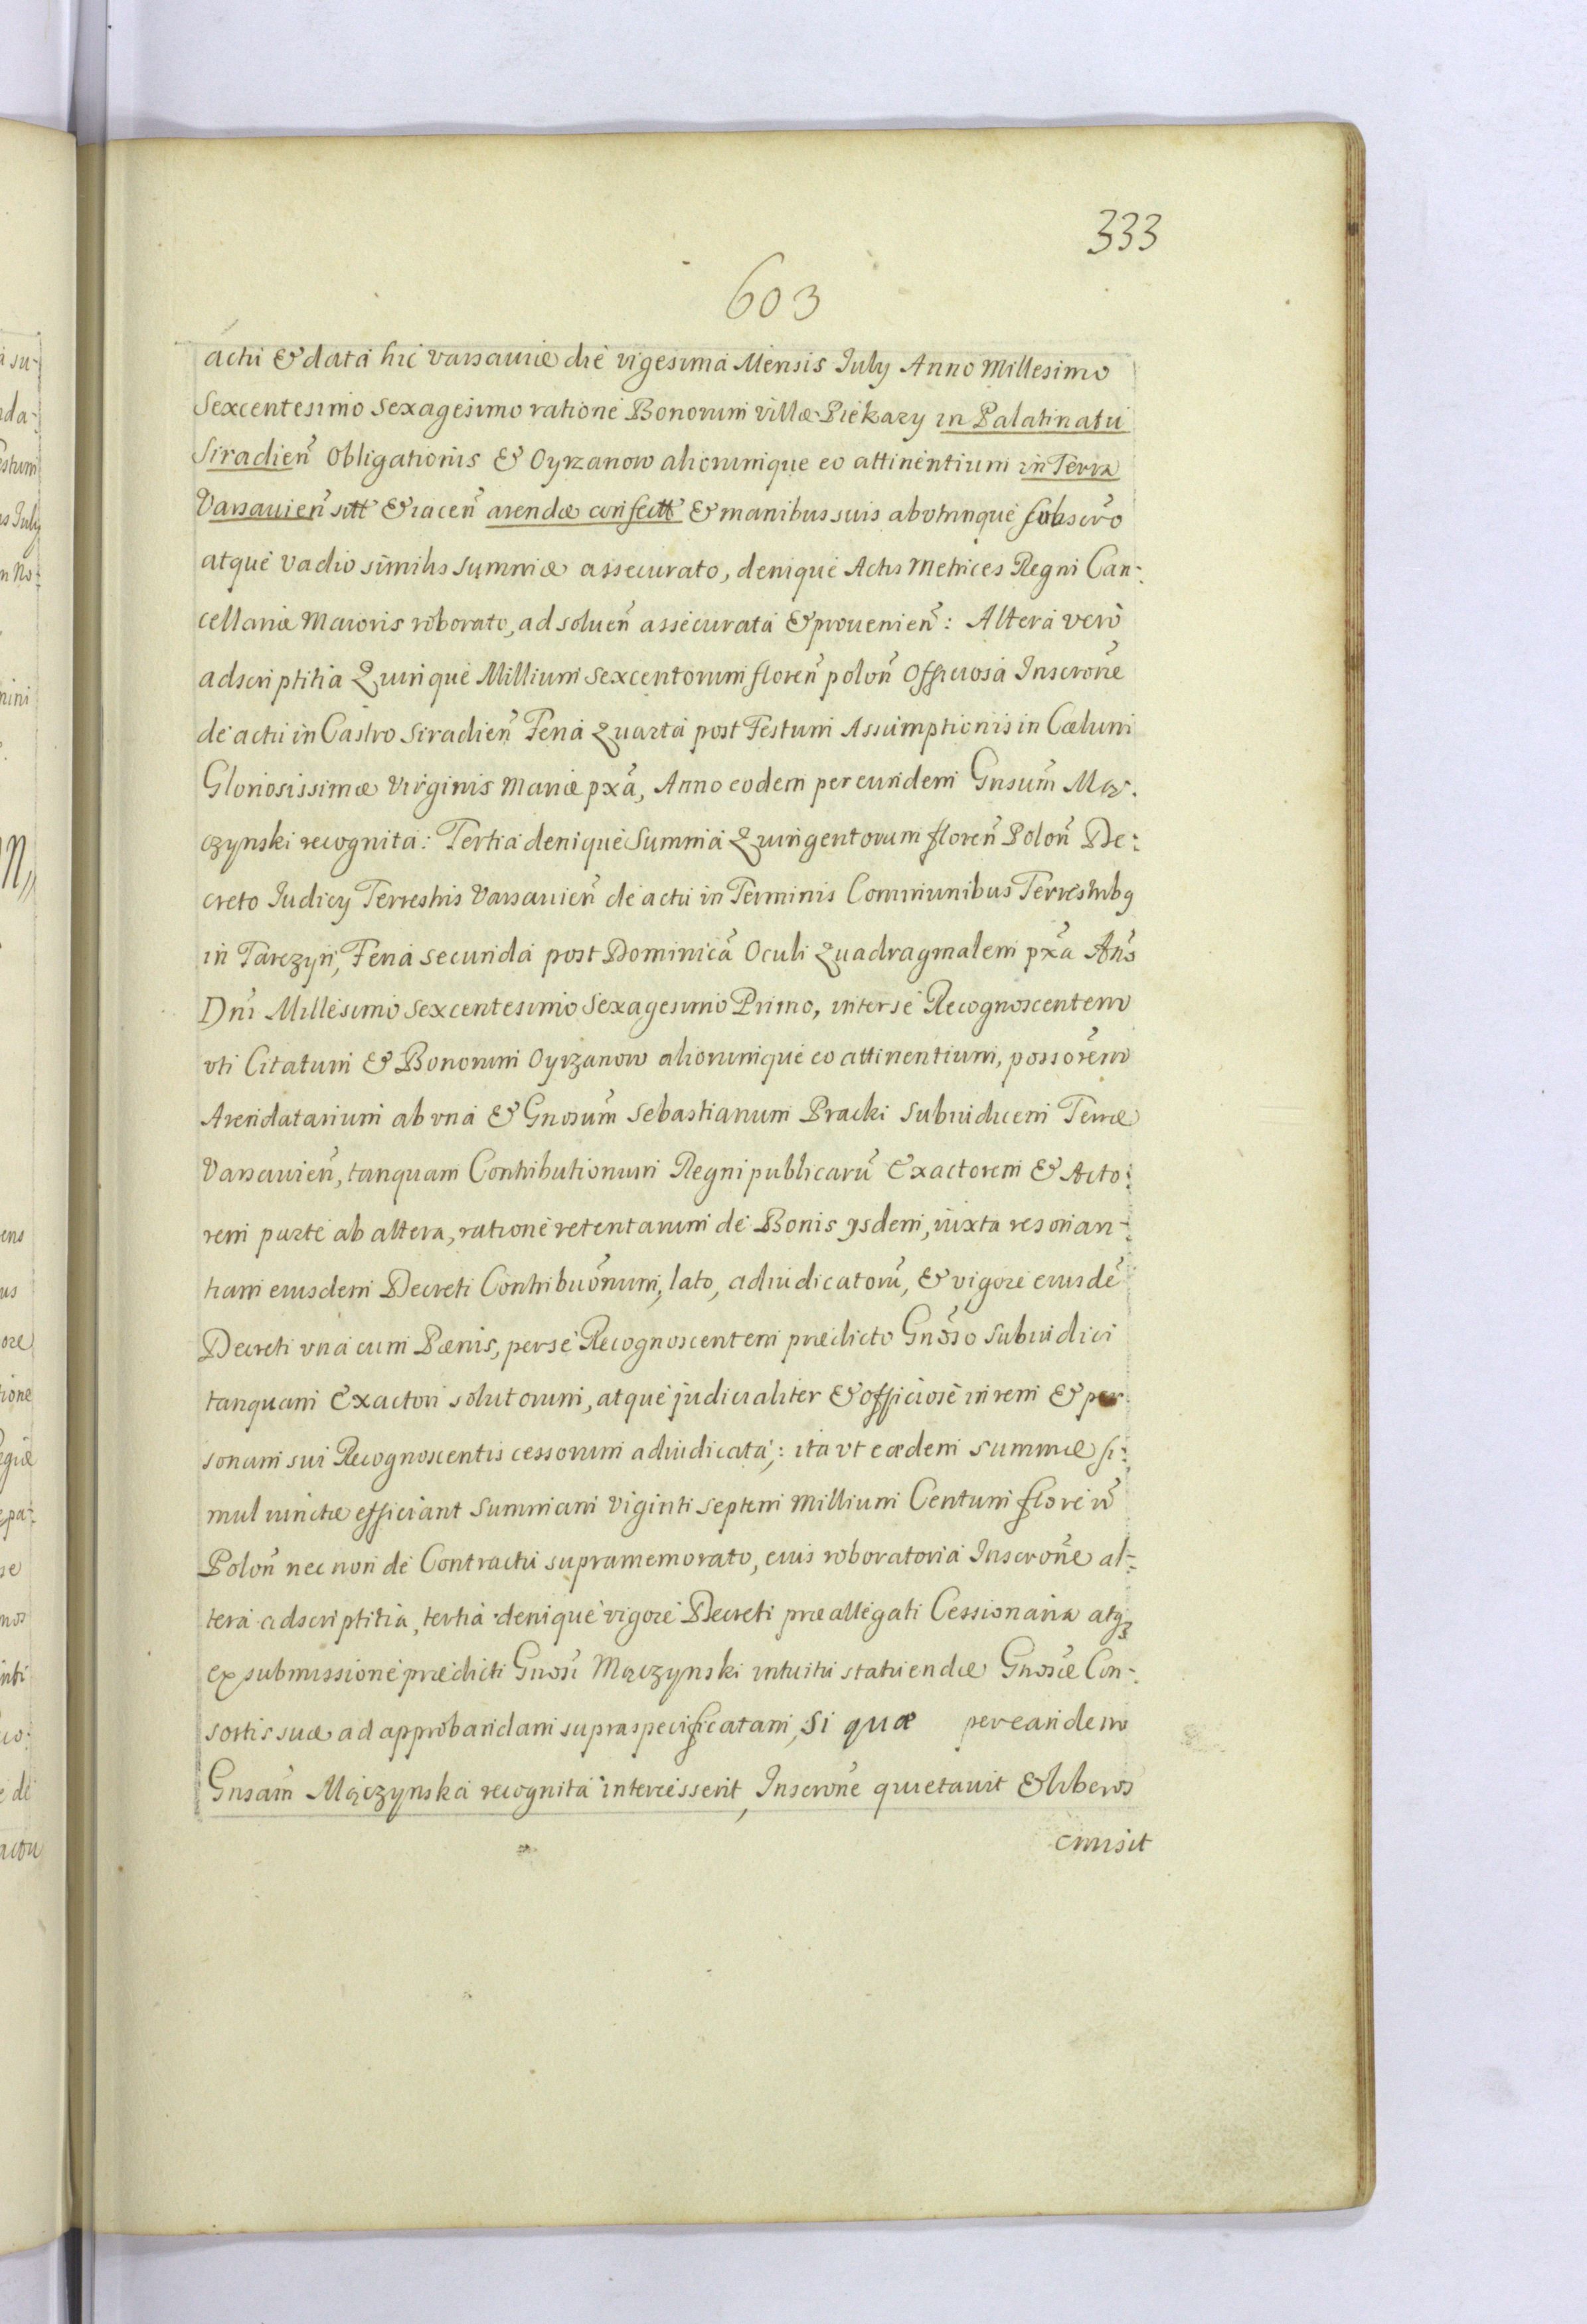 333
603
actu & data hic Varsauiæ die vigesima Mensis July Anno Millesimo
Sexcentesimo sexagesimo ratione Bonorum villæ Piekary in Palatinatu
Siradień Obligationis & Oyrzanow aliorumque eo attinentium in Terra
Varsauień sitt & iaceń arendæ confectt & manibus suis abvtrinque subscr̃o
atque vadio similis summæ assecurato, denique Actis Metrices Regni Can-
cellariæ Maioris roborato, ad solueń assecurata & prouenień: Altera verò
adscriptitia Quinque Millium sexcentorum floreń poloń Officiosa Inscrõne
de actu in Castro Siradień Feria Quarta post Festum Assumptionis in Cælum
Gloriosissimæ Virginis Mariæ px̃a, Anno eodem per eundem Gnsum̃ Mą-
czynski recognita: Tertia denique Summa Quingentorum floreń Poloń De:
creto Iudicij Terrestris Varsauień de actu in Terminis Communibus Terrestribq
in Tarczyn, Feria secunda post Dominicã Oculi Quadragmalem px̃a Añõ
Dñi Millesimo sexcentesimo sexagesimo Primo, inter se Recognoscentem
vti Citatum & Bonorum Oyrzanow aliorumque eo attinentium, possorẽm
Arendatarium ab vna & Gnosum̃ Sebastianum Pracki Subiudicem Terræ
Varsauień, tanquam Contributionum Regni publicarũ Exactorem & Acto:
rem parte ab altera, ratione retentarum de Bonis ysdem, iuxta resonan-
tiam eiusdem Decreti Contribuõnum, lato, adiudicatorũ, & vigore eiusdẽ
Decreti vna cum Pænis, per se Recognoscentem prædicto Gnõso Subiudici
tanquam Exactori solutorum, atque judicialiter & officiose in rem & per-
sonam sui Recognoscentis cessorum adiudicata,: ita vt eædem summæ si-
mul iunctæ efficiant summam Viginti septem Millium Centum floreń
Poloń nec non de Contractu supramemorato, eius roboratoria Inscrõne al-
tera adscriptitia, tertia denique vigore Decreti præallegati Cessionaria atqȝ
ex submissione prædicti Gnosi Mączynski intuitu statuendæ Gnosæ Con-
sortis suæ ad approbandam supraspecificatam, Si quæ per eandem
Gnsam̃ Mączynska recognita intercesserit, Inscrõne quietauit & liberos
emisit